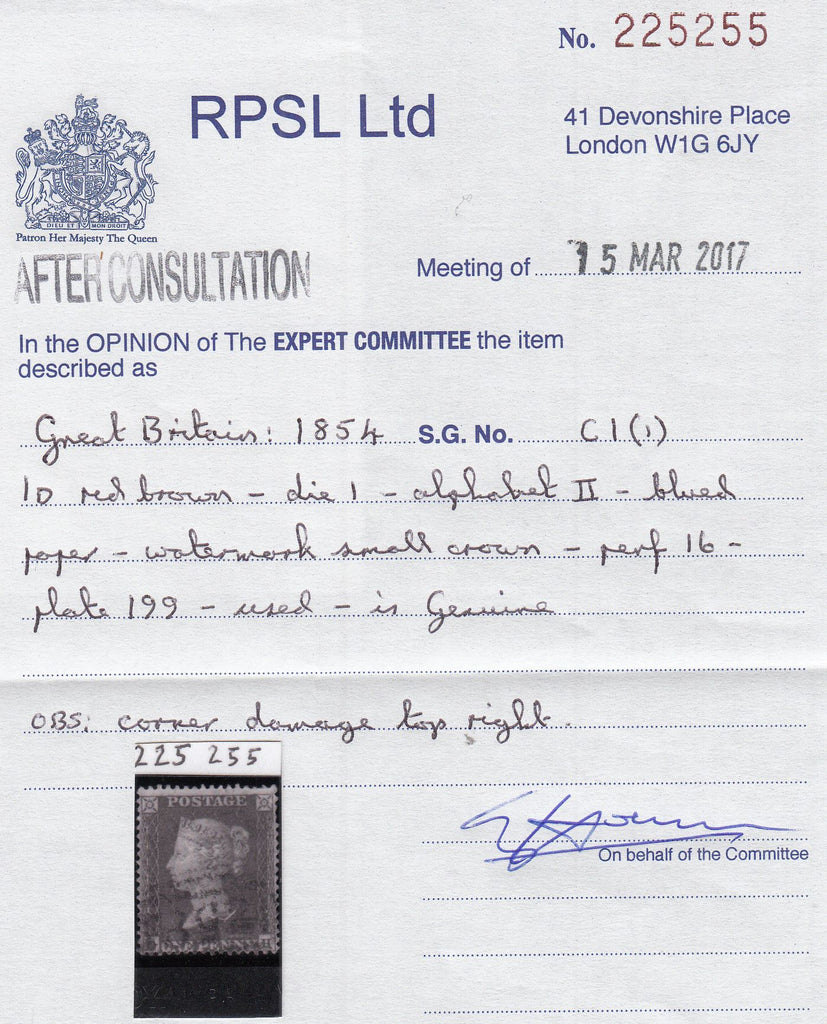 No. 225255
RPSL Ltd
41 Devonshire Place
London W1G 6JY
DIEU ET MON DROIT
Patron Her Majesty The Queen
AFTER CONSULTATION
Meeting of 15 MAR 2017
In the OPINION of The EXPERT COMMITTEE the item
described as
Great Britain: 1854 S.G. No. C1(1)
1D red brown - die 1 - alphabet II - blued
paper - watermark small crown - perf 16 -
plate 199 - used - is Genuine
OBS: corner damage top right.
225 255
POSTAGE
ONE PENNY
On behalf of the Committee